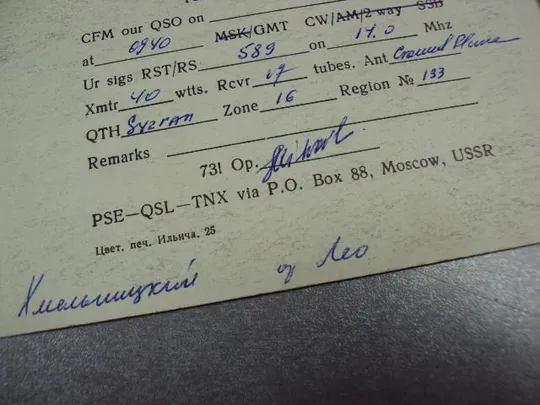 CFM our QSO on
at 0940 MSK/GMT CW/AM/2 way SSB
Ur sigs RST/RS 589 on 14.0 Mhz
Xmtr 40 wtts. Rcvr 17 tubes. Ant Ground Plane
QTH Syzran Zone 16 Region № 133
Remarks
73! Op.
PSE—QSL—TNX via P.O. Box 88, Moscow, USSR
Цвет. печ. Ильича, 25
Хмельницкий от Лео